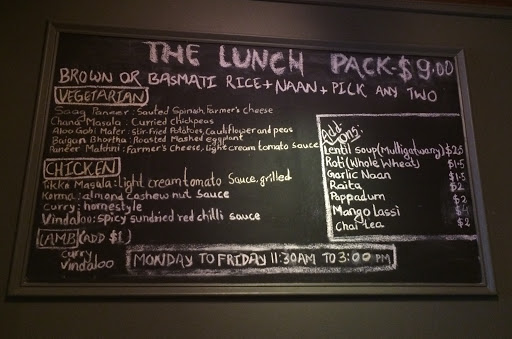 THE LUNCH PACK-$9.00
BROWN OR BASMATI RICE + NAAN + PICK ANY TWO
VEGETARIAN
Saag Paneer: Sauted Spinach, Farmer's cheese
Chana Masala: Curried chickpeas
Aloo Gobi Mater: Stir-Fried Potatoes, Cauliflower and peas
Baigan Bhartha: Roasted Mashed eggplant
Paneer Makhni: Farmer's Cheese, light cream tomato sauce
CHICKEN
Tikka Masala: light cream tomato sauce, grilled
Korma: almond cashew nut sauce
Curry: homestyle
Vindaloo: spicy sundried red chilli sauce
LAMB (ADD $1)
Curry
Vindaloo
Add-
Ons:
Lentil soup (Mulligatwany) $2.5
Roti (Whole Wheat) $1.5
Garlic Naan $1.5
Raita $2
Pappadum $2
Mango Lassi
Chai tea $2
MONDAY TO FRIDAY 11:30AM TO 3:00 PM